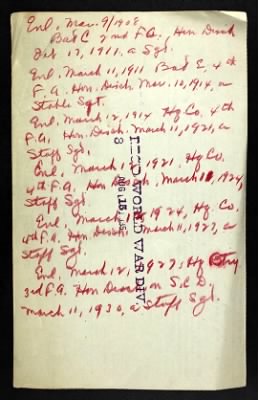 Enl. Mar. 9/1908
Bat C 2nd F.A., Hon. Disch
Feb 17, 1911, a Sgt.
Enl. March 11, 1911 Bat E, 4th
F.A. Hon. Disch. Mar. 10, 1914, a
Stable Sgt.
Enl. March 12, 1914 Hq Co. 4th
F.A. Hon. Disch. March 11, 1921, a
Staff Sgt.
Enl. March 1921, Hq Co.
4th F.A. Hon Disch. March 11, 1924,
Staff Sgt.
Enl. March 1924, Hq. Co.
4th F.A. Hon. Disch. March 11, 1927, a
Staff Sgt.
Enl. March 12, 1927, Hq Btry
3rd F.A. Hon Disch on S.C.D.
March 11, 1930, a Staff Sgt.
WORLD WAR DIV.
AUG 15